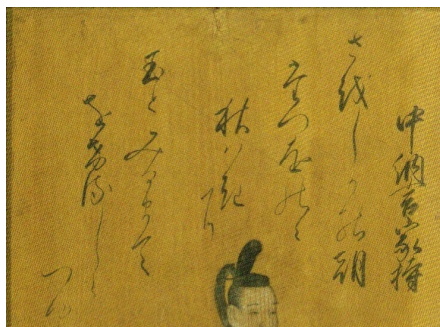 中納言家持
さ越しか能朝
たつをのゝ
秋はきに
玉とみるまて
をけるしら
つゆ